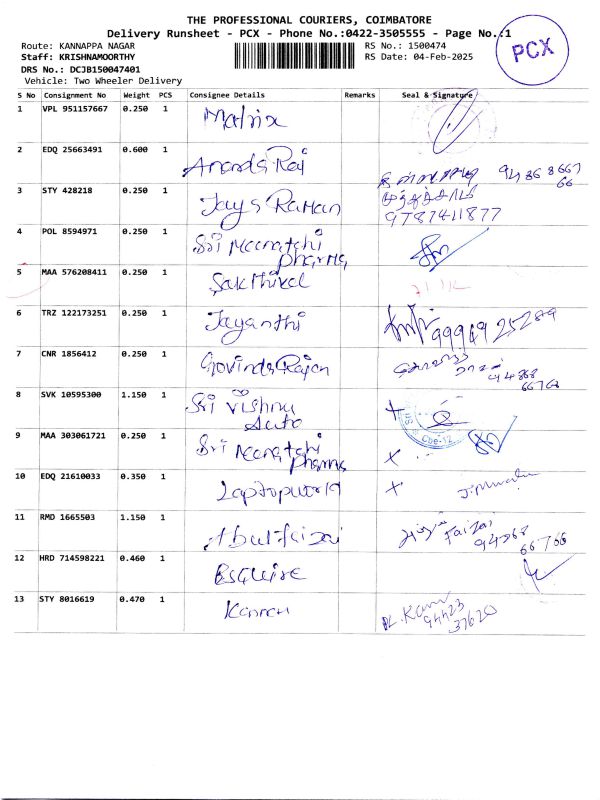 THE PROFESSIONAL COURIERS, COIMBATORE
Delivery Runsheet - PCX - Phone No.:0422-3505555 - Page No.:1
PCX
Route: KANNAPPA NAGAR
RS No.: 1500474
Staff: KRISHNAMOORTHY
RS Date: 04-Feb-2025
DRS No.: DCJB150047401
Vehicle: Two Wheeler Delivery
S No Consignment No Weight PCS Consignee Details Remarks Seal & Signature
1 VPL 951157667 0.250 1 Matrix
2 EDQ 25663491 0.600 1 Ananda Raj
94868667
66
3 STY 428218 0.250 1 Jaya Raman
9787411877
4 POL 8594971 0.250 1 Sri Meenatchi
Pharma
5 MAA 576208411 0.250 1 Sakthivel
6 TRZ 122173251 0.250 1 Jayanthi 9994925289
7 CNR 1856412 0.250 1 Govinda Rajan
94868
66766
8 SVK 10595300 1.150 1 Sri Vishnu
Auto
Cbe-12
9 MAA 303061721 0.250 1 Sri Meenatchi
Pharma
10 EDQ 21610033 0.350 1 Laptopworld
11 RMD 1665503 1.150 1 Abulfaizal
Faizal
94868
66766
12 HRD 714598221 0.460 1 Esquire
13 STY 8016619 0.470 1 Kannan
94423
37620